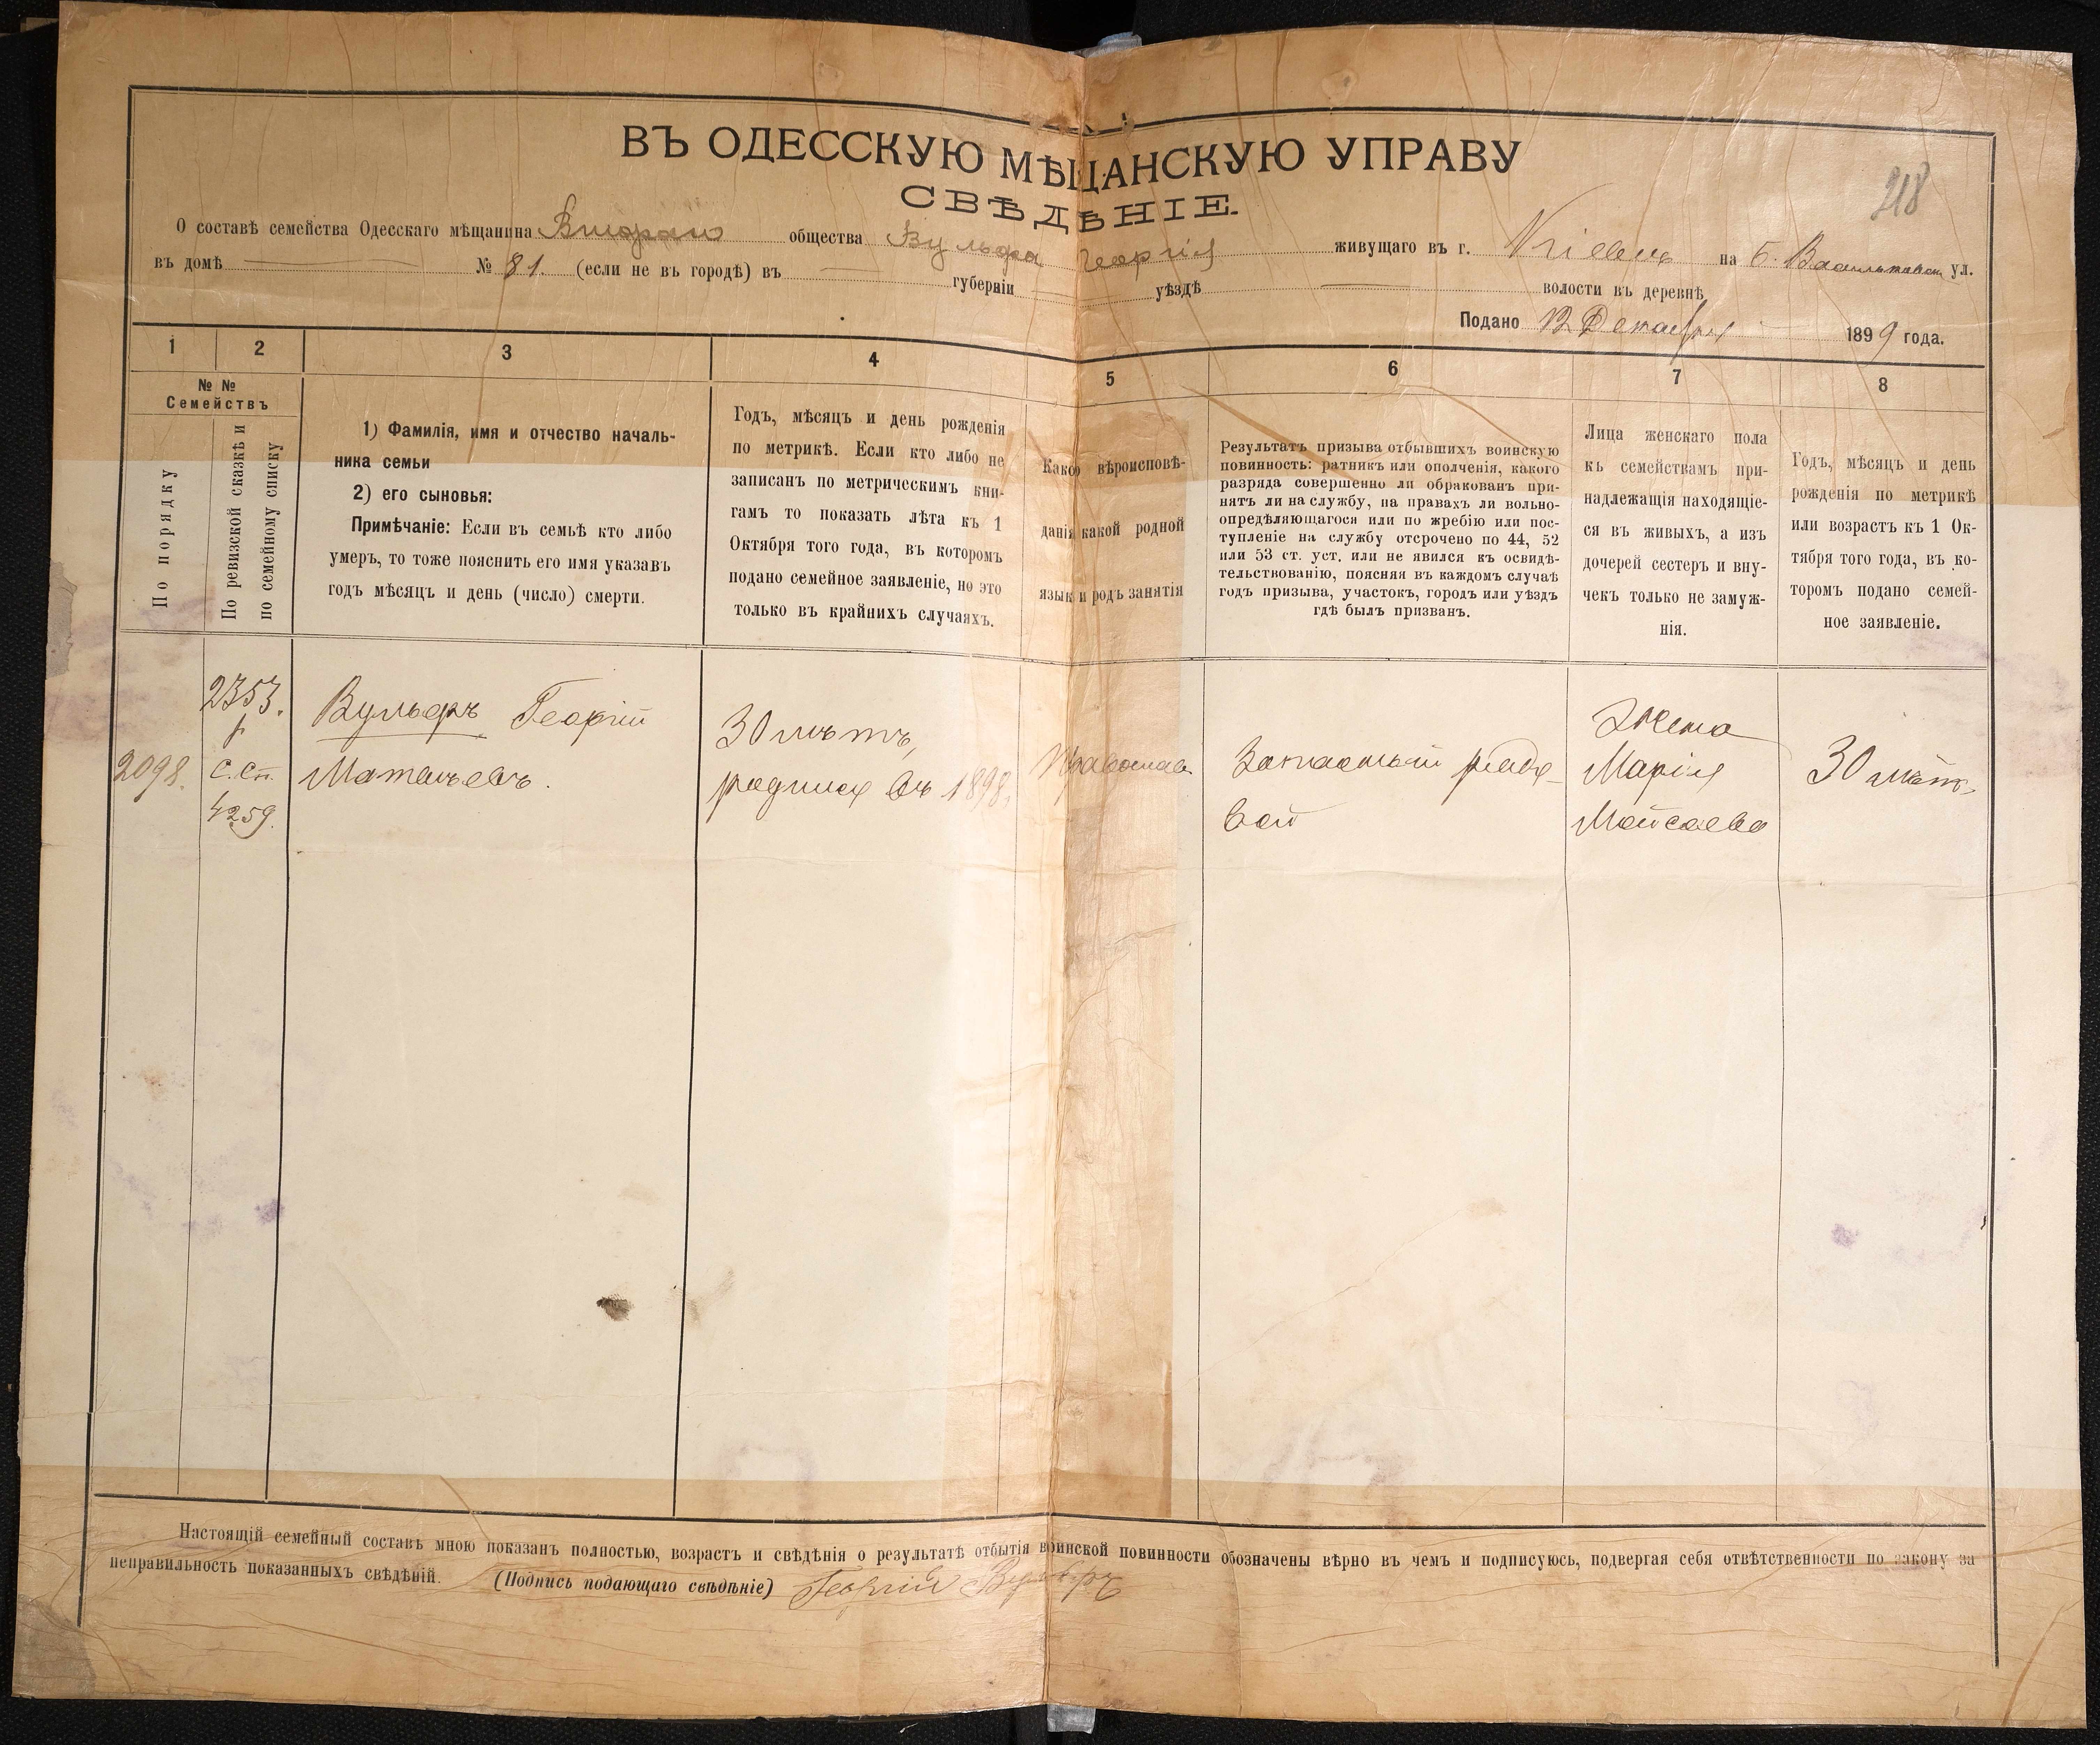 218
ВЪ ОДЕССКУЮ МѢЩАНСКУЮ УПРАВУ
СВѢДѢНІЕ.
О составѣ семейства Одесскаго мѣщанина Втораго общества Вульфа Георгія живущаго въ г. Кіевѣ на Б. Васильковск ул.
въ домѣ № 81. (если не въ городѣ) въ губерніи уѣздѣ волости въ деревнѣ
Подано 12 Декабря 1899 года.
1 2 3 4 5 6 7 8
№ №
Семействъ
По порядку
По ревизской сказкѣ и
по семейному списку
1) Фамилія, имя и отчество началь-
ника семьи
2) его сыновья:
Примѣчаніе: Если въ семьѣ кто либо
умеръ, то тоже пояснить его имя указавъ
годъ мѣсяцъ и день (число) смерти.
Годъ, мѣсяцъ и день рожденія
по метрикѣ. Если кто либо не
записанъ по метрическимъ кни-
гамъ то показать лѣта къ 1
Октября того года, въ которомъ
подано семейное заявленіе, но это
только въ крайнихъ случаяхъ.
Какое вѣроисповѣ-
данія какой родной
языкъ и родъ занятія
Результатъ призыва отбывшихъ воинскую
повинность: ратникъ или ополченія, какого
разряда совершенно ли обракованъ при-
нятъ ли на службу, на правахъ ли вольно-
опредѣляющагося или по жребію или пос-
тупленіе на службу отсрочено по 44, 52
или 53 ст. уст. или не явился къ освидѣ-
тельствованію, поясняя въ каждомъ случаѣ
годъ призыва, участокъ, городъ или уѣздъ
гдѣ былъ призванъ.
Лица женскаго пола
къ семействамъ при-
надлежащія находящіе-
ся въ живыхъ, а изъ
дочерей сестеръ и вну-
чекъ только не замуж-
нія.
Годъ, мѣсяцъ и день
рожденія по метрикѣ
или возрастъ къ 1 Ок-
тября того года, въ ко-
торомъ подано семей-
ное заявленіе.
2098.
2353.
р
с. сп.
4259.
Вульфъ Георгій
Матвѣевъ.
30 лѣтъ,
родился въ 1898.
Православ.
Запасный рядо-
вой
Жена
Марія
Мойсеева
30 лѣтъ.
Настоящій семейный составъ мною показанъ полностью, возрастъ и свѣдѣнія о результатѣ отбытія воинской повинности обозначены вѣрно въ чемъ и подписуюсь, подвергая себя отвѣтственности по закону за
неправильность показанныхъ свѣдѣній. (Подпись подающаго свѣдѣніе) Георгій Вульфъ